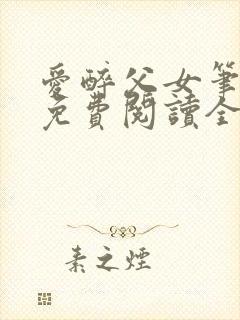 愛醉父女筆
免費閱讀全
素之煙